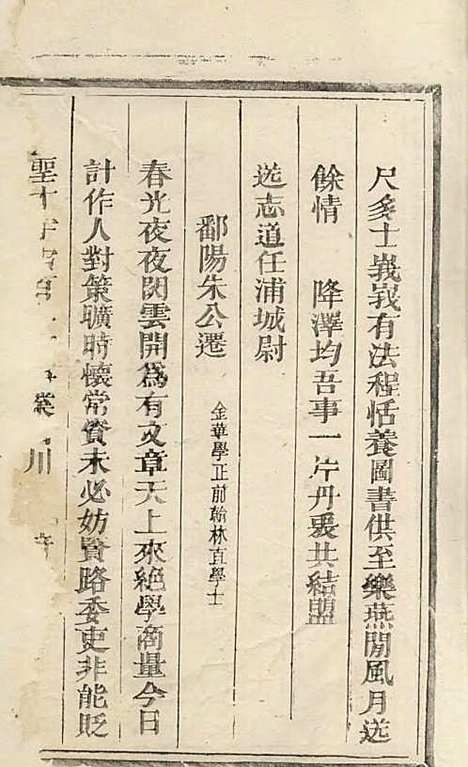 尺多士峩峩有法程恬養圖書供至樂燕閒風月送
餘情　降澤均吾事一片丹衷共結盟
送志道任浦城尉
鄱陽朱公遷
金華學正前翰林直學士
春光夜夜閃雲開爲有文章天上來絕學商量今日
計作人對策曠時懷常資未必妨賢路委吏非能貶
聖才
川